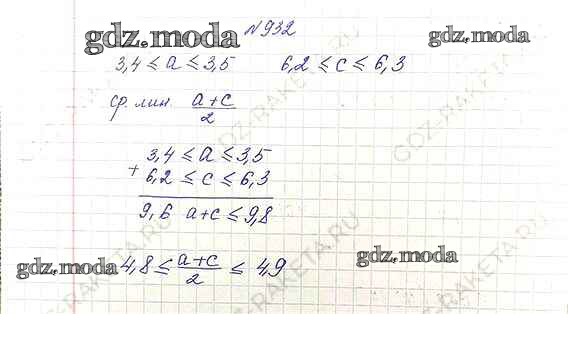 gdz.moda №932 gdz.moda
3,4 ≤ a ≤ 3,5 6,2 ≤ c ≤ 6,3
ср. лин. a+c/2
3,4 ≤ a ≤ 3,5
+ 6,2 ≤ c ≤ 6,3
9,6 a+c ≤ 9,8
gdz.moda 4,8 ≤ a+c/2 ≤ 4,9 gdz.moda
GDZ-RAKETA.RU
GDZ-RAKETA.RU
GDZ-RAKETA.RU